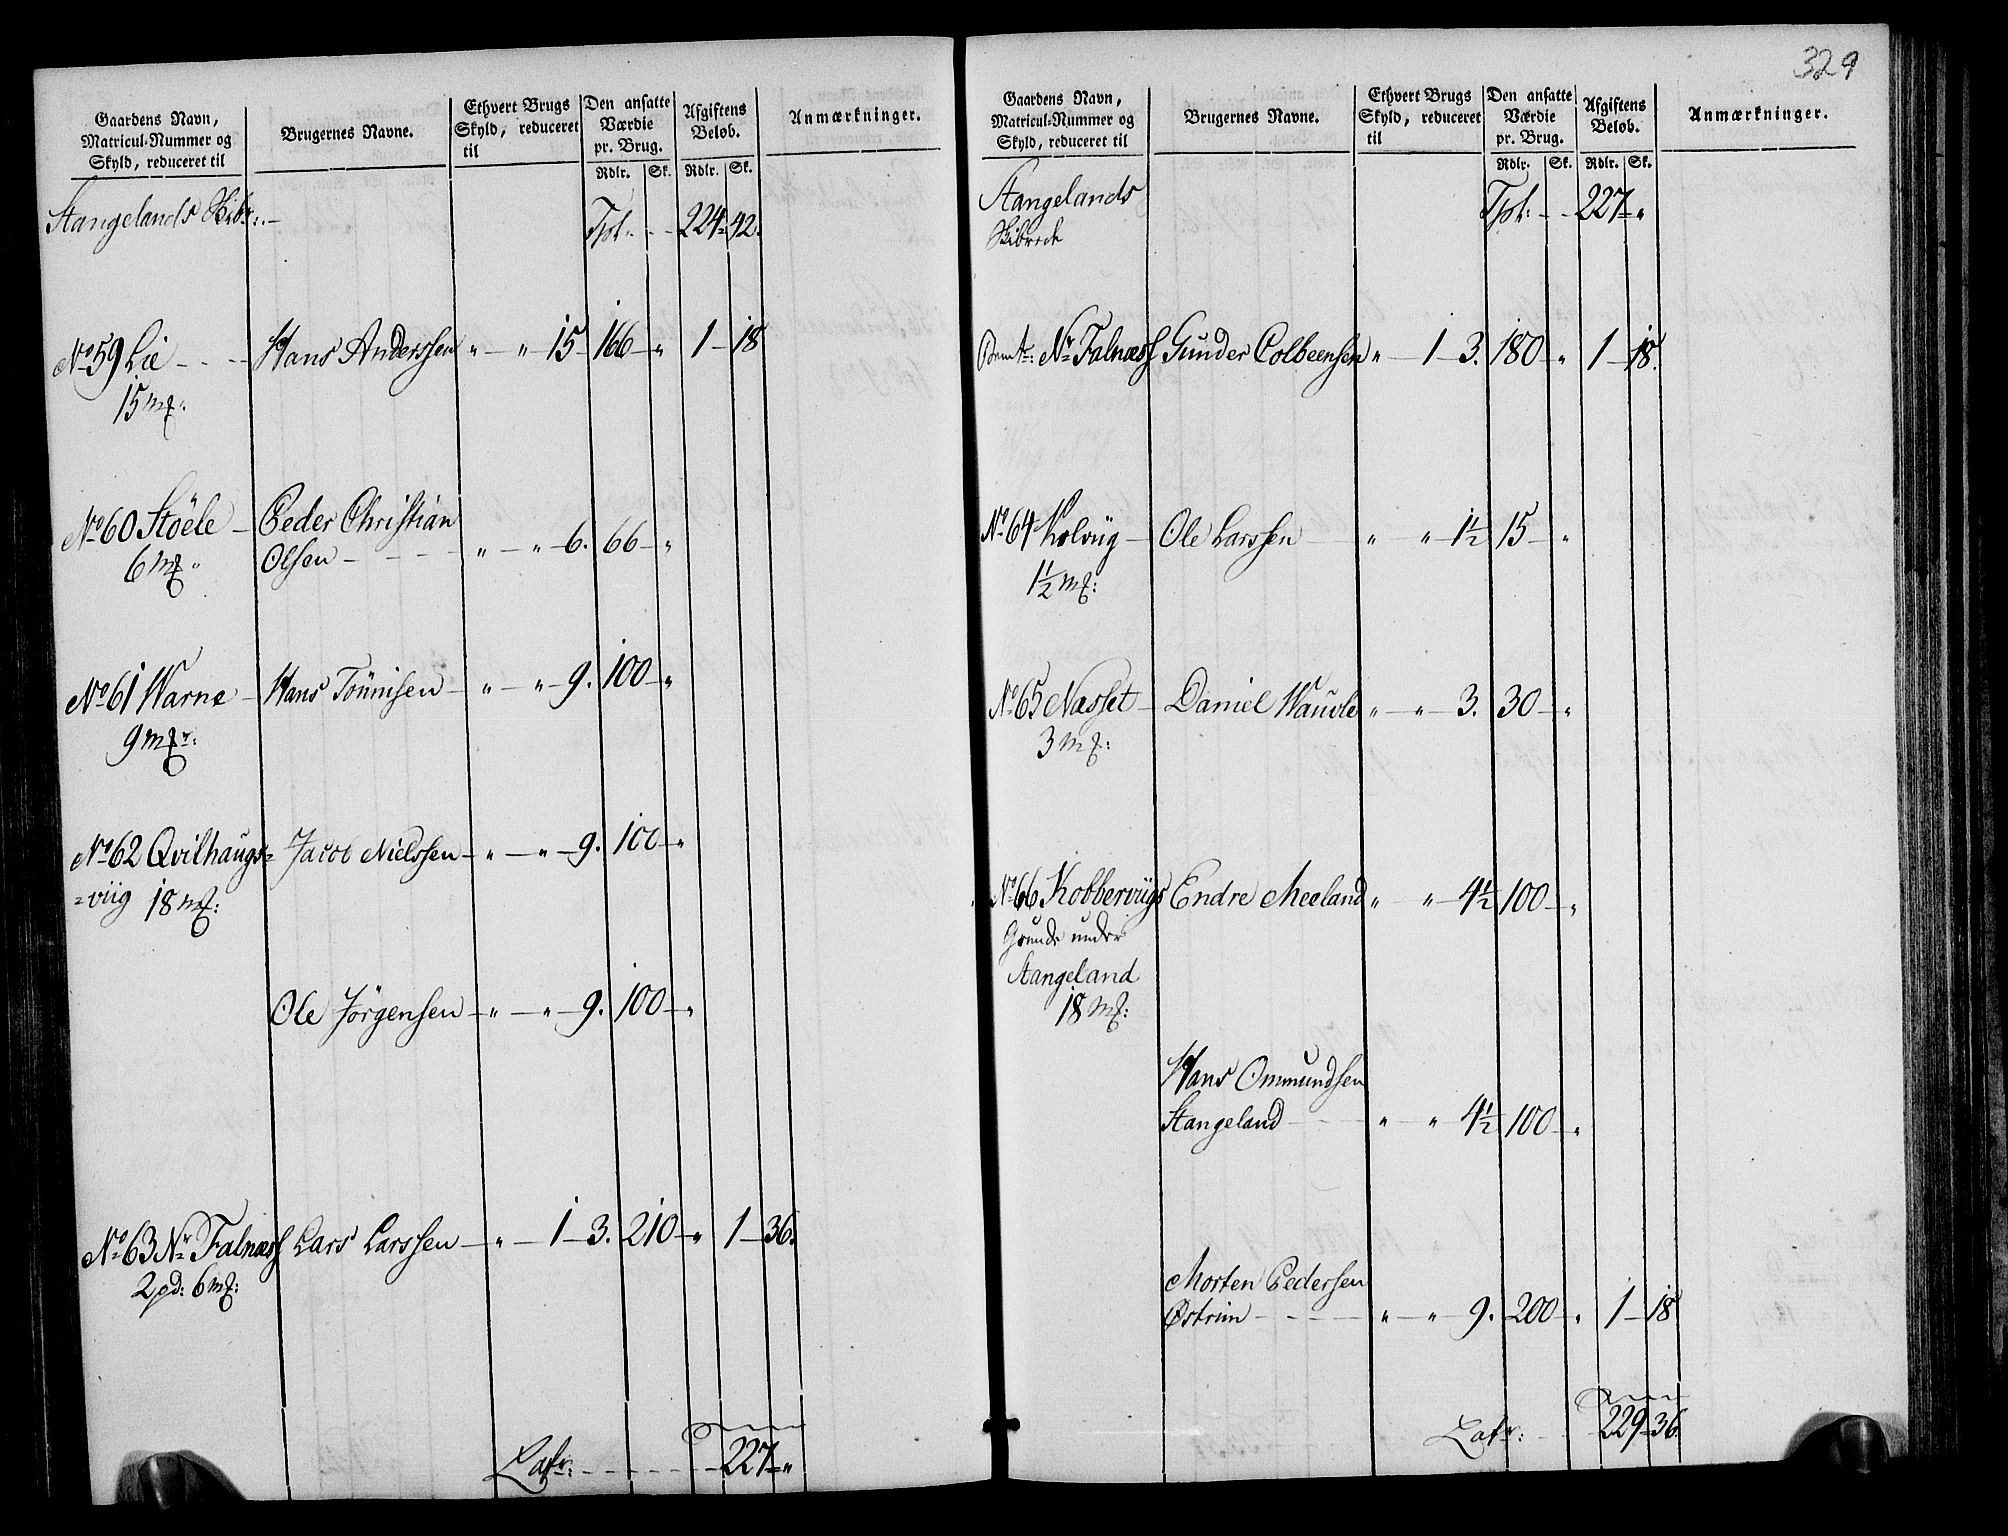 Gaardens Navn, Matricul-Nummer og Skyld, reduceret til | Brugernes Navne. | Ethvert Brugs Skyld, reduceret til | Den ansatte Værdie pr. Brug. Rdlr. Sk. | Afgiftens Beløb. Rdlr. Sk. | Anmærkninger.
Stangelands Skibr:
Tpt: - - 224 " 42.
No 59 Lie - - - Hans Anderssen " - " 15 - 166 - " 1 - 18
15 mf:
No 60 Støele - Peder Christian
6 mf " Olsen - - - - " - " - 6. 66 - "
No 61 Warne - Hans Tönnisen - " - " - 9. 100 - "
9 mfr:
No 62 Qvilhaugs= Jacob Nielssen - " - " - 9. 100 - "
=viig 18 mf:
Ole Jörgensen - " - " - 9. 100 - "
No 63 Nr Falnæss Lars Larssen - " - 1 - 3. 210 - " 1 - 36.
2 pd: 6 mf:
Latr: - - - - - - 227 - "
329
Gaardens Navn, Matricul-Nummer og Skyld, reduceret til | Brugernes Navne. | Ethvert Brugs Skyld, reduceret til | Den ansatte Værdie pr. Brug. Rdlr. Sk. | Afgiftens Beløb. Rdlr. Sk. | Anmærkninger.
Stangelands
Skibrede
Tpt: - - 227 - "
Nr Falnæss Gunder Colbeensen " - 1 - 3. 180 - " 1 - 18.
No 64 Kolviig - Ole Larssen " " - 1½ 15 - "
1½ mf:
No 65 Næsset - Daniel Waule " - " - 3. 30 - "
3 mf:
No 66 Kobberviigs Endre Meeland " " - 4½ 100 - "
Grunde under
Stangeland
18 mf:
Hans Ommundsen
Stangeland - - - " " 4½ 100 - "
Morten Pedersen
Østrim - - - - - " - " - 9. 200 - " 1 - 18
Latr: - - 229 - 36.